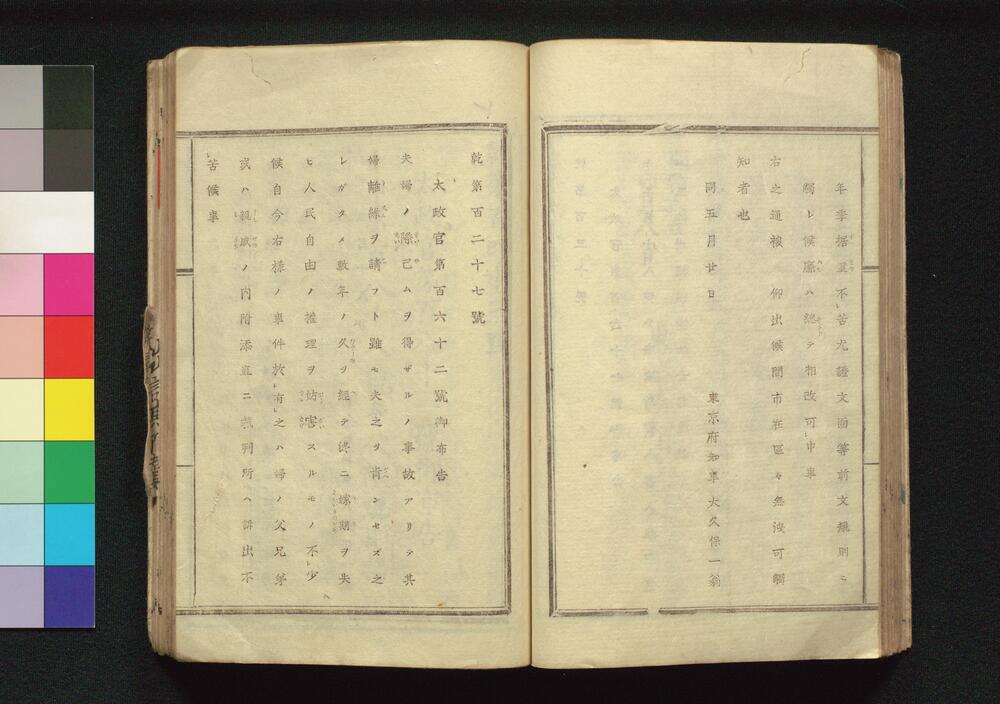 年季据置不レ苦尤證文面等前文規則ニ
觸レ候廉ハ總テ相改可レ申事
右之通被　仰出候間市在區々無洩可觸
知者也
同五月廿日
東京府知事大久保一翁
乾第百二十七號
太政官第百六十二號御布告
夫婦ノ際已ムヲ得ザルノ事故アリテ其
婦離縁ヲ請フト雖モ夫之ヲ肯ンセズ之
レガタメ數年ノ久ヲ經テ終ニ嫁期ヲ失
ヒ人民自由ノ權理ヲ妨害スルモノ不レ少
候自今右樣ノ事件於レ有レ之ハ婦ノ父兄弟
或ハ親戚ノ内附添直ニ裁判所ヘ訴出不
レ苦候事